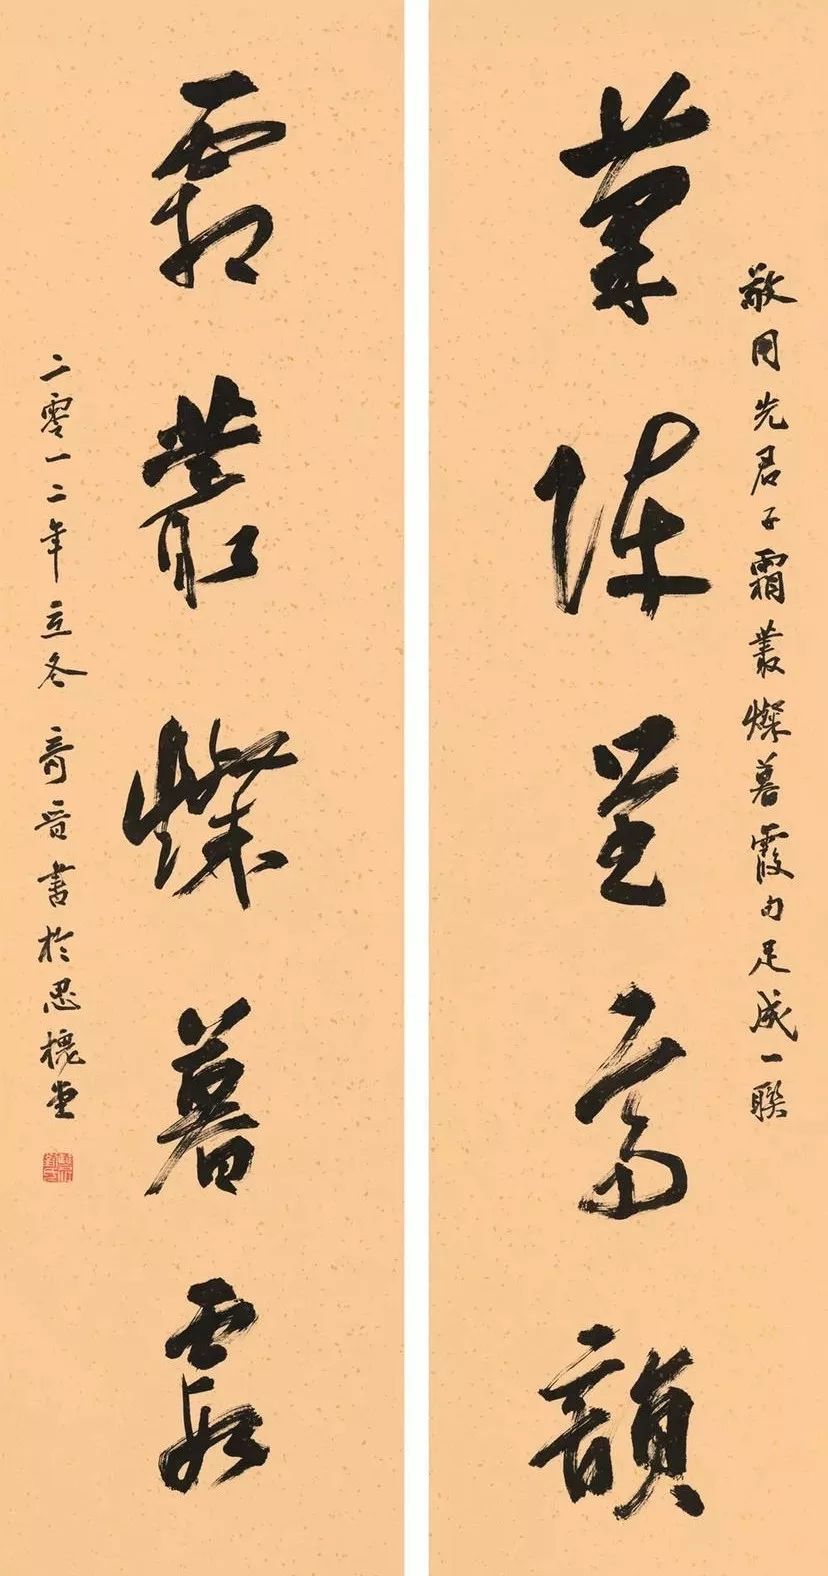 敬用先君子霜叢燦暮霞句足成一聯
菊陣呈高韻
霜叢燦暮霞
二零一二年立冬 奇晋書於思槐堂